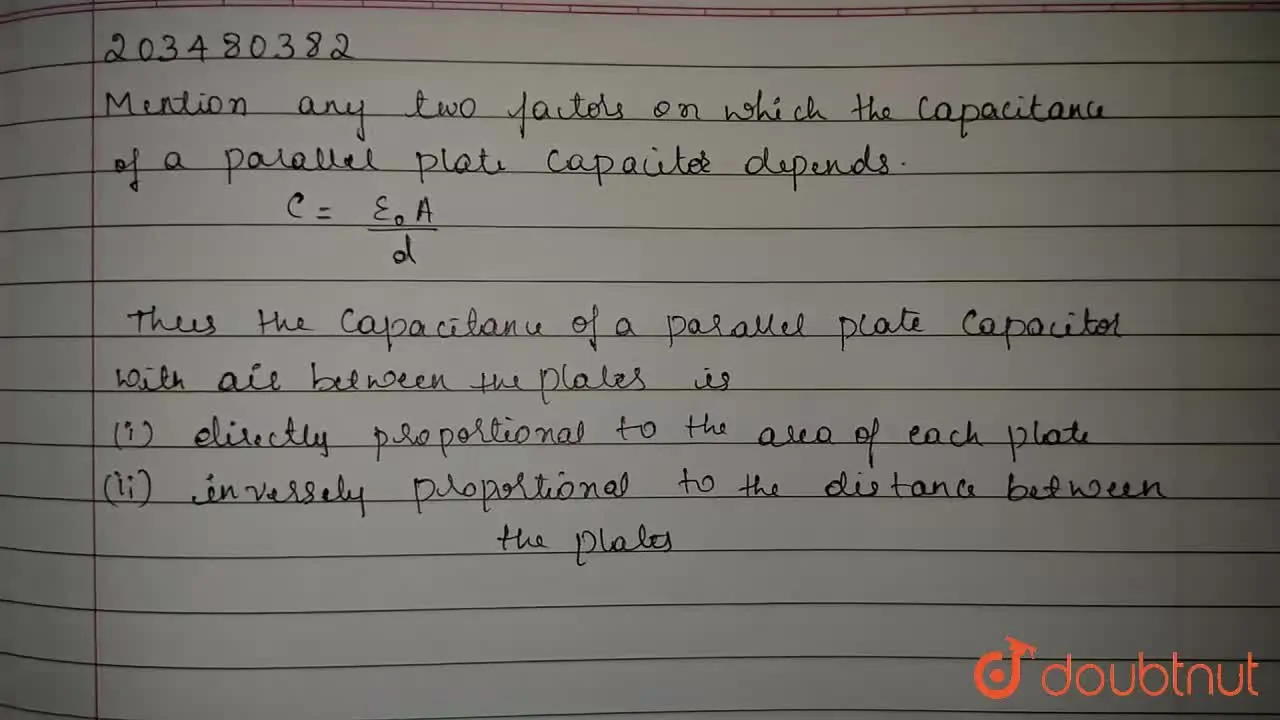 203480382
Mention any two factors on which the capacitance
of a parallel plate capacitor depends.
C = ε₀ A
d
Thus the capacitance of a parallel plate capacitor
with air between the plates is
(i) directly proportional to the area of each plate
(ii) inversely proportional to the distance between
the plates
doubtnut